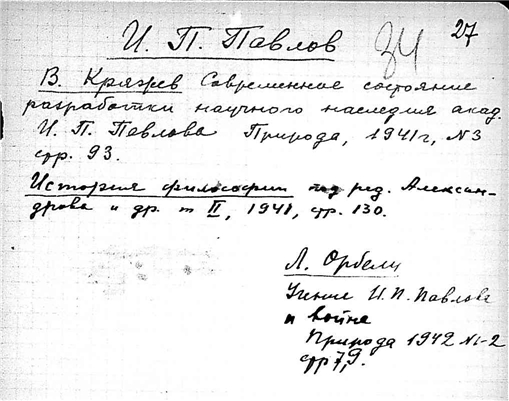 27
И. П. Павлов
34
В. Кряжев Современное состояние
разработки научного наследия акад.
И. П. Павлова Природа, 1941г, N3
стр. 93.
История философии под ред. Алексан-
дрова и др. т II, 1941, стр. 130.
Л. Орбели
Учение И. П. Павлова
и война
Природа 1942 N1-2
стр 7,9.